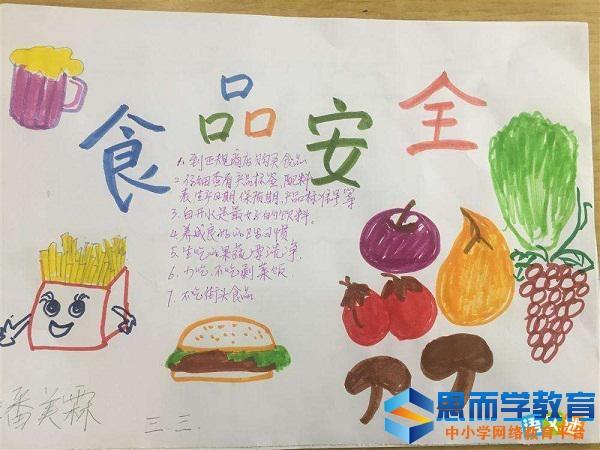 食品安全
1. 到正规商店购买食品
2. 仔细查看产品标签、配料
表生产日期、保质期、产品标准号等
3. 白开水是最好的饮料.
4. 养成良好的卫生习惯
5. 生吃瓜果蔬要洗净.
6. 少吃、不吃剩菜饭
7. 不吃街头食品
潘美霖
三.三.
思而学教育
中小学网络教育平台